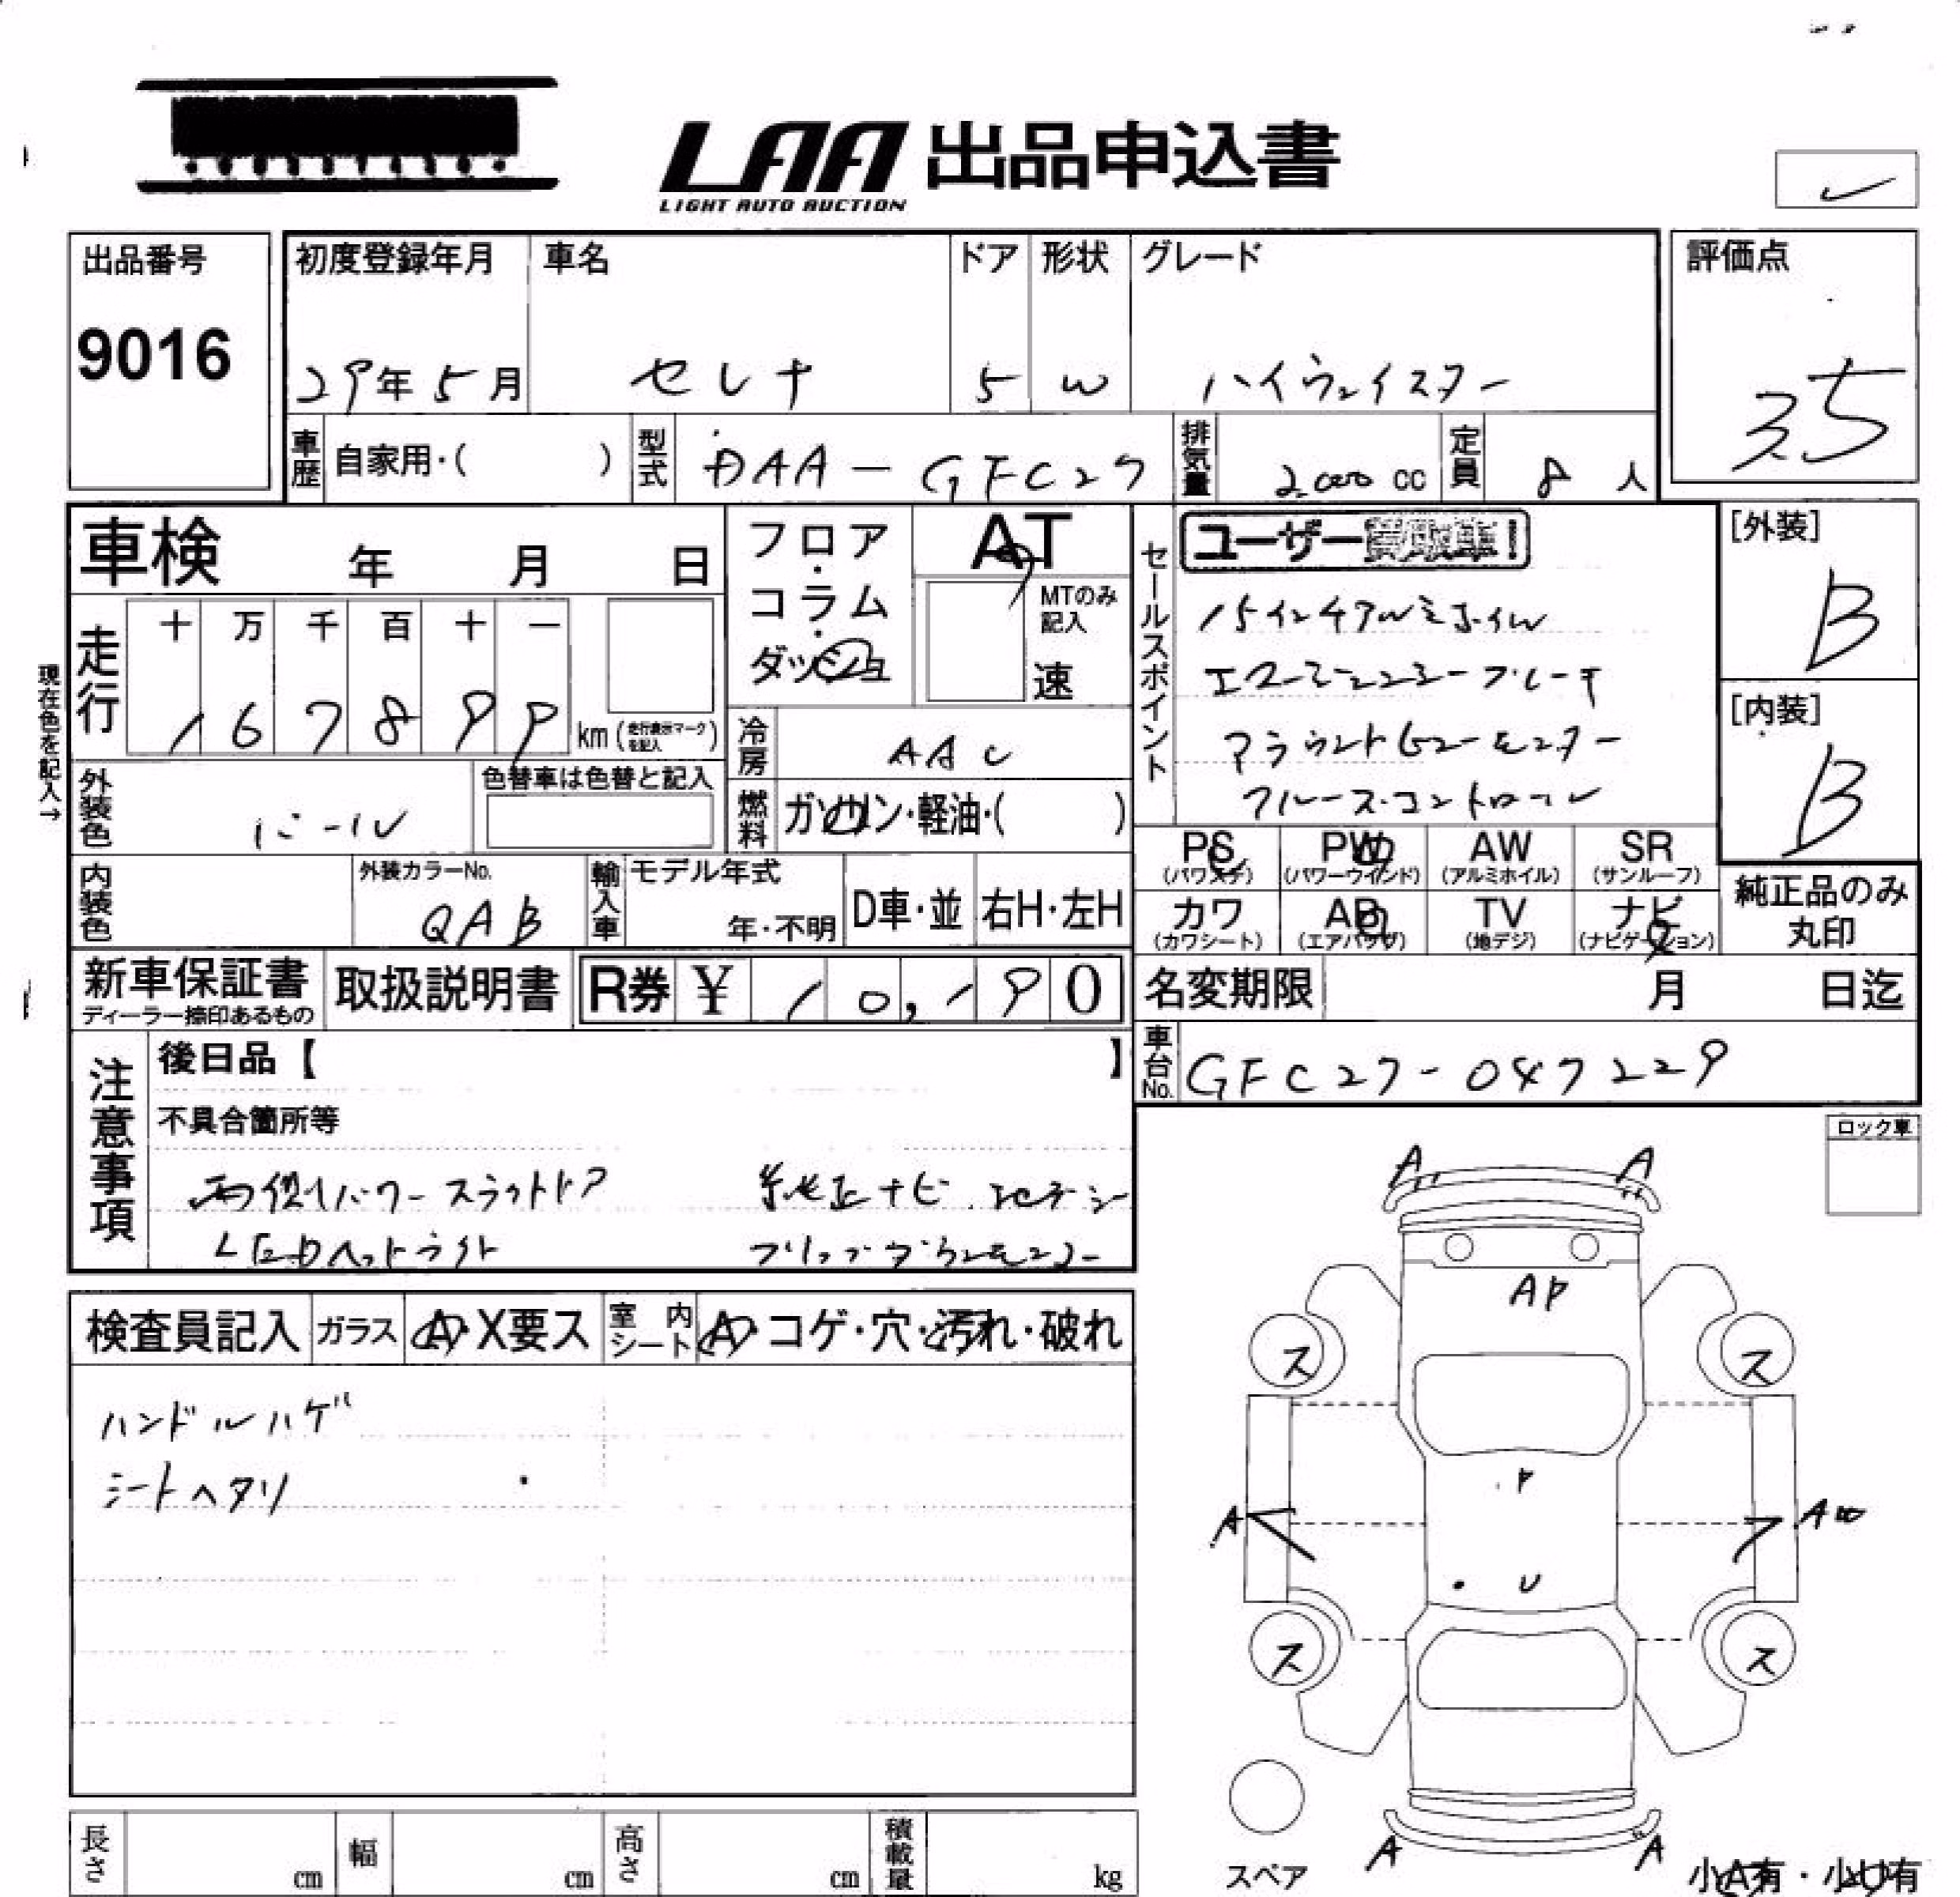 LAA 出品申込書
LIGHT AUTO AUCTION
出品番号
9016
初度登録年月 車名 ドア 形状 グレード
29年5月 セレナ 5 W ハイウェイスター
評価点
3.5
車歴 自家用・( ) 型式 DAA-GFC27 排気量 2000 cc 定員 8 人
車検 年 月 日
フロア・コラム・ダッシュ
AT
MTのみ記入
速
セールスポイント
ユーザー
15インチアルミホイル
エマージェンシーブレーキ
アラウンドビューモニター
クルーズコントロール
[外装]
B
[内装]
B
現在色を記入→
走行 十 万 千 百 十 一
167899 km (走行表示マークを記入)
冷房 AAC
外装色 パール
色替車は色替と記入
燃料 ガソリン・軽油・( )
PS (パワステ) PW (パワーウインド) AW (アルミホイル) SR (サンルーフ)
カワ (カワシート) AB (エアバッグ) TV (地デジ) ナビ (ナビゲーション)
純正品のみ丸印
内装色
外装カラーNo.
QAB
輸入車 モデル年式
年・不明
D車・並 右H・左H
新車保証書
ディーラー捺印あるもの
取扱説明書
R券 ¥ 10,190
名変期限 月 日迄
車台No. GFC27-047229
注意事項
後日品【 】
不具合箇所等
両側パワースライドドア 純正ナビ 地デジ
LEDヘッドライト フリップダウンモニター
ロック車
検査員記入 ガラス A・X要ス 室内シート A・コゲ・穴・汚れ・破れ
ハンドルハゲ
シートヘタリ
A A
AP
ス ス
P
A A
U
ス ス
A A
スペア
小A有・小U有
長さ cm 幅 cm 高さ cm 積載量 kg